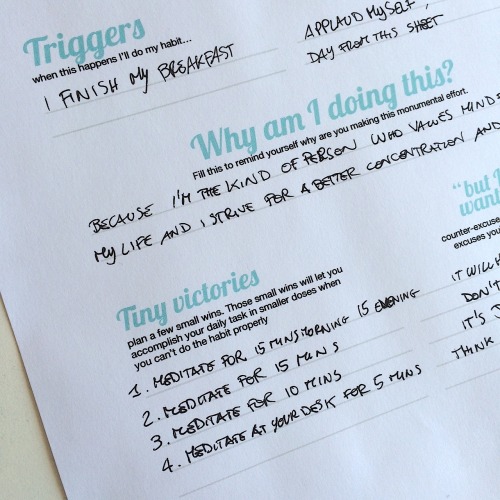 Triggers
when this happens I'll do my habit...
I FINISH MY BREAKFAST
APPLAUD MYSELF,
DAY FROM THIS SHEET
Why am I doing this?
Fill this to remind yourself why are you making this monumental effort.
BECAUSE I'M THE KIND OF PERSON WHO VALUES
MY LIFE AND I STRIVE FOR A BETTER CONCENTRATION AND
"but
want
counter-excuse
excuses you
IT WILL
DON'T
IT'S
THINK
Tiny victories
plan a few small wins. Those small wins will let you
accomplish your daily task in smaller doses when
you can't do the habit properly
1. MEDITATE FOR 15 MINS MORNING 15 EVENING
2. MEDITATE FOR 15 MINS
3. MEDITATE FOR 10 MINS
4. MEDITATE AT YOUR DESK FOR 5 MINS